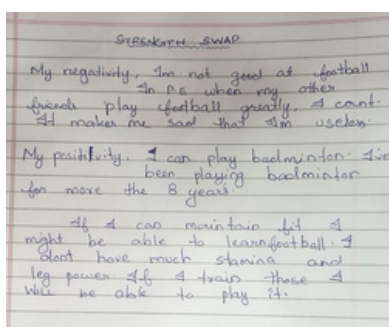 STRENGTH SWAP
My negativity, Im not good at football
In P.E when my other
friends play football greatly, I cant.
It makes me sad that Im useless.
My positivity. I can play badminton. I've
been playing badminton
for more the 8 years.
If I can maintain fit I
might be able to learn football. I
dont have much stamina and
leg power. If I train those I
will be able to play it.